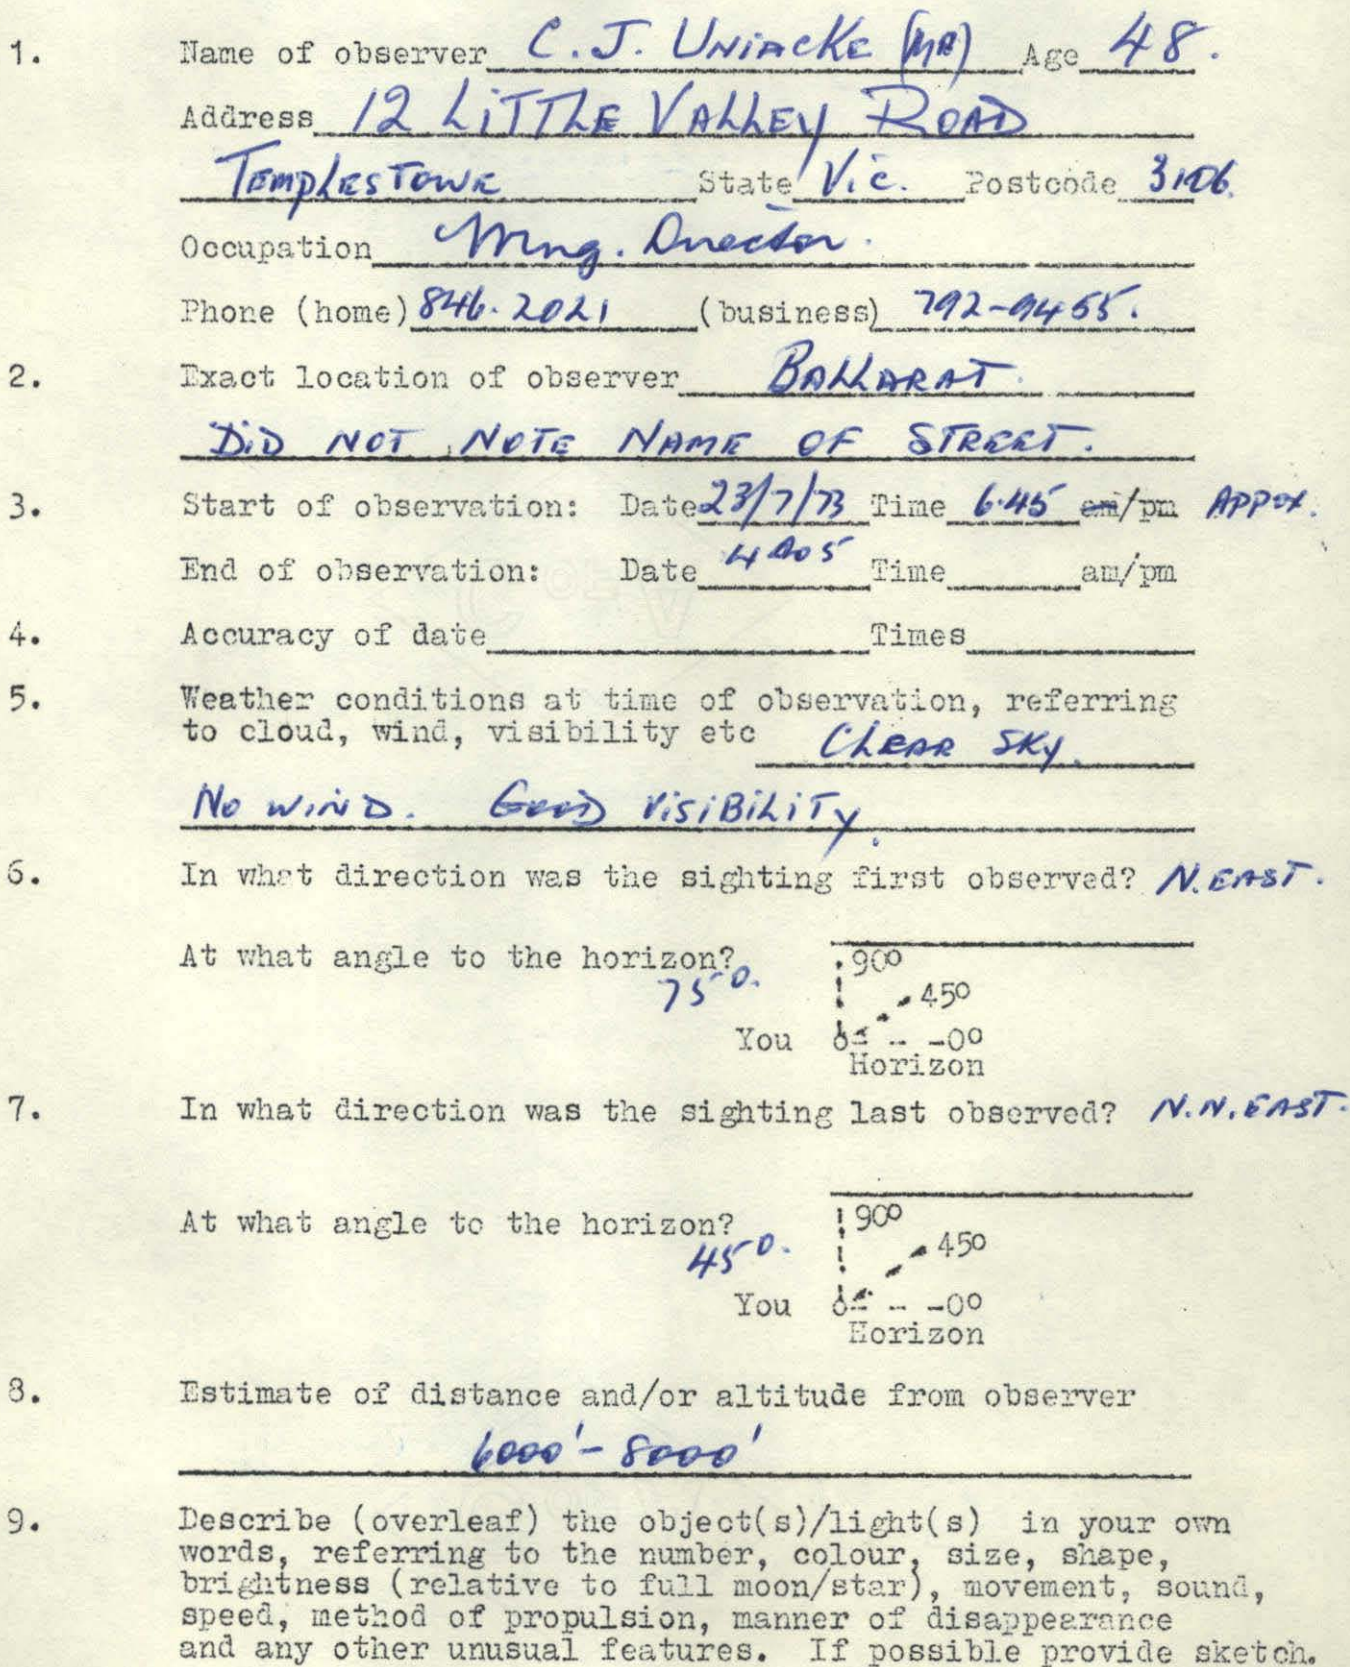 1. Name of observer C. J. UNIACKE (MR) Age 48.
Address 12 LITTLE VALLEY ROAD
TEMPLESTOWE State Vic. Postcode 3106.
Occupation Mng. Director.
Phone (home) 846.2021 (business) 792-9455.
2. Exact location of observer BALLARAT.
DID NOT NOTE NAME OF STREET.
3. Start of observation: Date 23/7/73 Time 6.45 am/pm APPOX.
End of observation: Date Time am/pm
4. Accuracy of date Times
5. Weather conditions at time of observation, referring
to cloud, wind, visibility etc CLEAR SKY.
NO WIND. GOOD VISIBILITY.
6. In what direction was the sighting first observed? N.EAST.
At what angle to the horizon? 90°
75°. 45°
You -0°
Horizon
7. In what direction was the sighting last observed? N.N.EAST.
At what angle to the horizon? 90°
45°. 45°
You -0°
Horizon
8. Estimate of distance and/or altitude from observer
6000' - 8000'
9. Describe (overleaf) the object(s)/light(s) in your own
words, referring to the number, colour, size, shape,
brightness (relative to full moon/star), movement, sound,
speed, method of propulsion, manner of disappearance
and any other unusual features. If possible provide sketch.